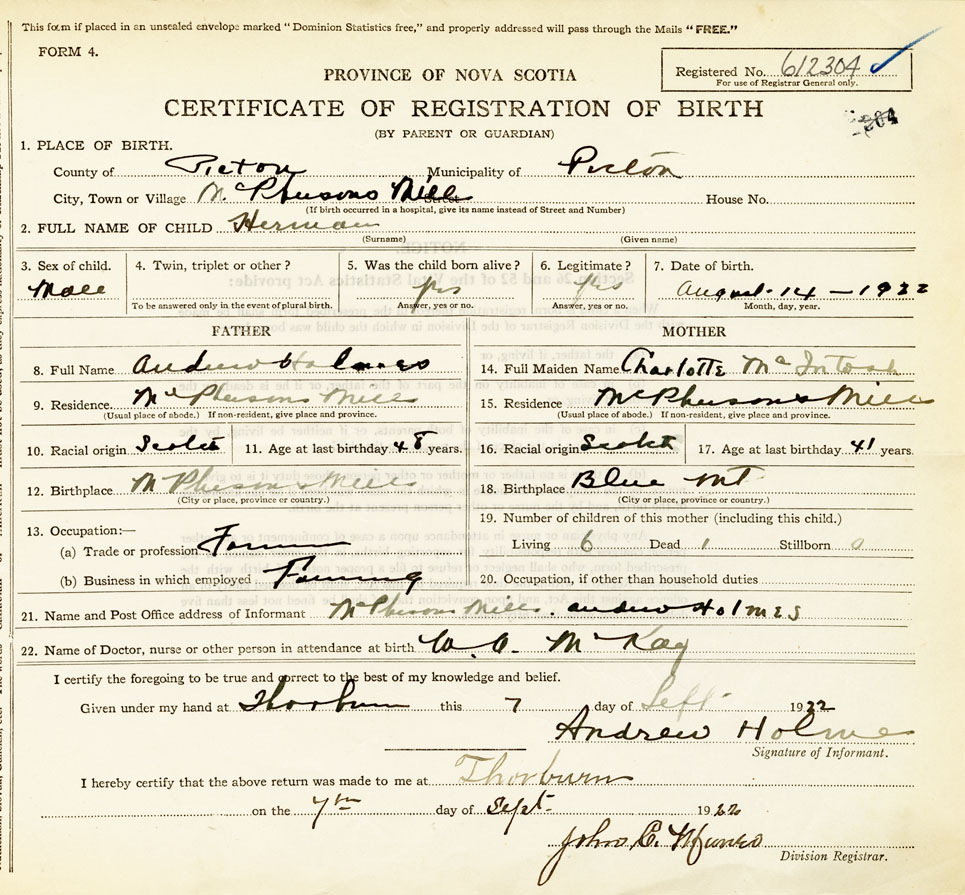 This form if placed in an unsealed envelope marked "Dominion Statistics free," and properly addressed will pass through the Mails "FREE."
FORM 4.
PROVINCE OF NOVA SCOTIA
Registered No. 612304
For use of Registrar General only.
CERTIFICATE OF REGISTRATION OF BIRTH
(BY PARENT OR GUARDIAN)
1. PLACE OF BIRTH.
County of Picton Municipality of Picton
City, Town or Village McPhersons Mill Street House No.
(If birth occurred in a hospital, give its name instead of Street and Number)
2. FULL NAME OF CHILD Herman
(Surname) (Given name)
3. Sex of child. 4. Twin, triplet or other? 5. Was the child born alive? 6. Legitimate? 7. Date of birth.
Male yes yes August 14 - 1922
To be answered only in the event of plural birth. Answer, yes or no. Answer, yes or no. Month, day, year.
FATHER MOTHER
8. Full Name Andrew Holmes 14. Full Maiden Name Charlotte McIntosh
9. Residence McPhersons Mills 15. Residence McPhersons Mills
(Usual place of abode.) If non-resident, give place and province. (Usual place of abode.) If non-resident, give place and province.
10. Racial origin Scotch 11. Age at last birthday 48 years. 16. Racial origin Scotch 17. Age at last birthday 41 years.
12. Birthplace McPhersons Mills 18. Birthplace Blue Mt
(City or place, province or country.) (City or place, province or country.)
13. Occupation:— 19. Number of children of this mother (including this child.)
(a) Trade or profession Farming Living 6 Dead 1 Stillborn 0
(b) Business in which employed Farming 20. Occupation, if other than household duties
21. Name and Post Office address of Informant McPhersons Mills. Andrew Holmes
22. Name of Doctor, nurse or other person in attendance at birth McKay
I certify the foregoing to be true and correct to the best of my knowledge and belief.
Given under my hand at Thorburn this 7 day of Sept 1922
Andrew Holmes
Signature of Informant.
I hereby certify that the above return was made to me at Thorburn
on the 7th day of Sept. 1922
John C. Munro
Division Registrar.